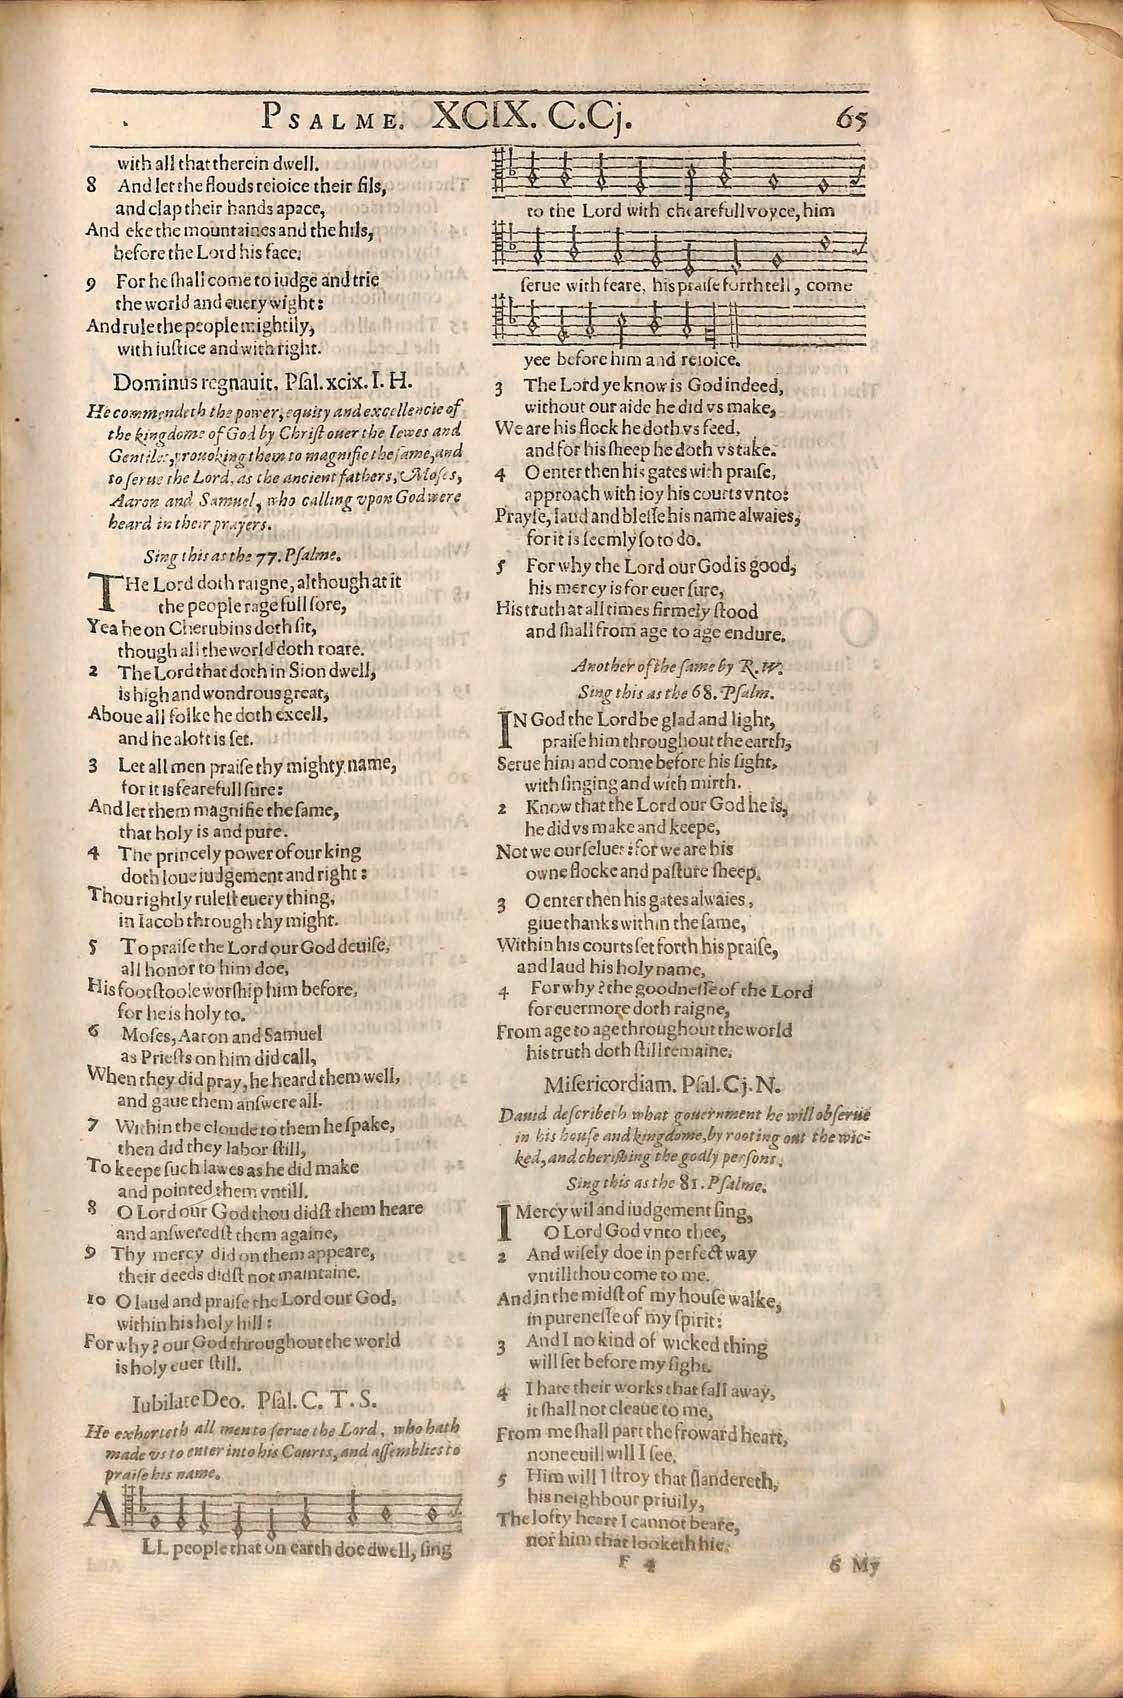 PSALME. XCIX. C.Cj. 65
with all that therein dwell.
8 And let the flouds reioice their fils,
and clap their hands apace,
And eke the mountaines and the hils,
before the Lord his face.
9 For he ſhall come to iudge and trie
the world and euery wight:
And rule the people mightily,
with iuſtice and with right.
Dominus regnauit. Pſal. xcix. I. H.
He commendeth the power, equity and excellencie of
the kingdome of God by Chriſt ouer the Iewes and
Gentiles, prouoking them to magnifie the ſame, and
to ſerue the Lord, as the ancient fathers, Moſes,
Aaron and Samuel, who calling vpon God were
heard in their prayers.
Sing this as the 77. Pſalme.
THe Lord doth raigne, although at it
the people rage full ſore,
Yea he on Cherubins doth ſit,
though all the world doth roare.
2 The Lord that doth in Sion dwell,
is high and wondrous great,
Aboue all folke he doth excell,
and he aloft is ſet.
3 Let all men praiſe thy mighty name,
for it is fearefull ſure:
And let them magnifie the ſame,
that holy is and pure.
4 The princely power of our king
doth loue iudgement and right:
Thou rightly ruleſt euery thing,
in Iacob through thy might.
5 To praiſe the Lord our God deuiſe,
all honor to him doe,
His footſtoole worſhip him before,
for he is holy to.
6 Moſes, Aaron and Samuel
as Prieſts on him did call,
When they did pray, he heard them well,
and gaue them anſwere all.
7 Within the cloude to them he ſpake,
then did they labor ſtill,
To keepe ſuch lawes as he did make
and pointed them vntill.
8 O Lord our God thou didſt them heare
and anſweredſt them againe,
9 Thy mercy did on them appeare,
their deeds didſt not maintaine.
10 O laud and praiſe the Lord our God,
within his holy hill:
For why? our God throughout the world
is holy euer ſtill.
Iubilate Deo. Pſal. C. T. S.
He exhorteth all men to ſerue the Lord, who hath
made vs to enter into his Courts, and aſſemblies to
praiſe his name.
ALL people that on earth doe dwell, ſing
to the Lord with chearefull voyce, him
ſerue with feare, his praiſe forth tell, come
yee before him and reioice.
3 The Lord ye know is God indeed,
without our aide he did vs make,
We are his flock he doth vs feed,
and for his ſheep he doth vs take.
4 O enter then his gates with praiſe,
approach with ioy his courts vnto:
Prayſe, laud and bleſſe his name alwaies,
for it is ſeemly ſo to do.
5 For why the Lord our God is good,
his mercy is for euer ſure,
His truth at all times firmely ſtood
and ſhall from age to age endure.
Another of the ſame by R. W.
Sing this as the 68. Pſalm.
IN God the Lord be glad and light,
praiſe him throughout the earth,
Serue him and come before his ſight,
with ſinging and with mirth.
2 Know that the Lord our God he is,
he did vs make and keepe,
Not we our ſelues: for we are his
owne flocke and paſture ſheep.
3 O enter then his gates alwaies,
giue thanks within the ſame,
Within his courts ſet forth his praiſe,
and laud his holy name,
4 For why? the goodneſſe of the Lord
for euermore doth raigne,
From age to age throughout the world
his truth doth ſtill remaine.
Miſericordiam. Pſal. Cj. N.
Dauid deſcribeth what gouernment he will obſerue
in his houſe and kingdome, by rooting out the wic-
ked, and cheriſhing the godly perſons.
Sing this as the 81. Pſalme.
I Mercy wil and iudgement ſing,
O Lord God vnto thee,
2 And wiſely doe in perfect way
vntill thou come to me.
And in the midſt of my houſe walke,
in pureneſſe of my ſpirit:
3 And I no kind of wicked thing
will ſet before my ſight.
4 I hate their works that fall away,
it ſhall not cleaue to me,
From me ſhall part the froward heart,
none euill will I ſee.
5 Him will I ſtroy that ſlandereth,
his neighbour priuily,
The lofty heart I cannot beare,
nor him that looketh hie.
F 4 6 My